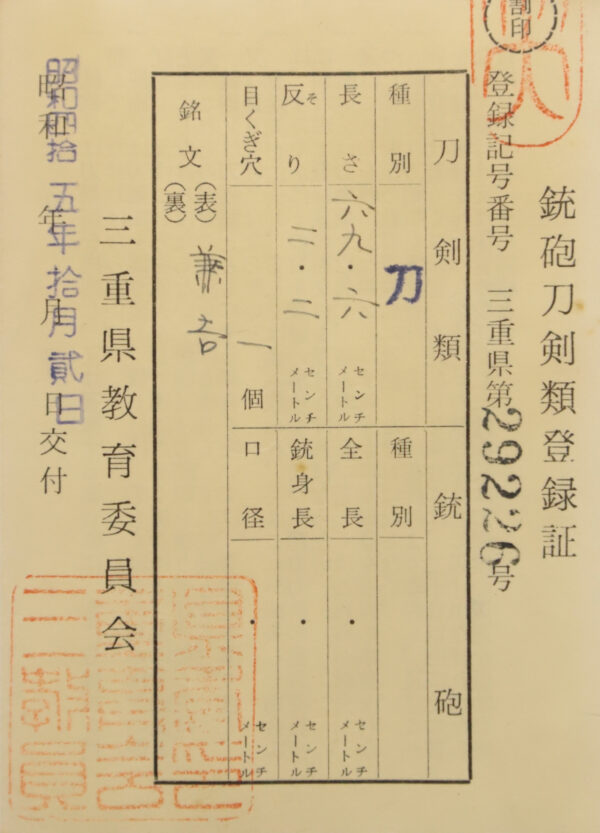 割印
銃砲刀剣類登録証
登録記号番号 三重県第29226号
刀剣類
種別 刀
長さ 六九・六 センチメートル
反り そ 二・二 センチメートル
目くぎ穴 一個
銘文 (表) 兼吉
(裏)
銃砲
種別
全長 ・ センチメートル
銃身長 ・ センチメートル
口径 ・ センチメートル
三重県教育委員会
昭和 年 月 日交付
昭和四拾五年拾月貳日